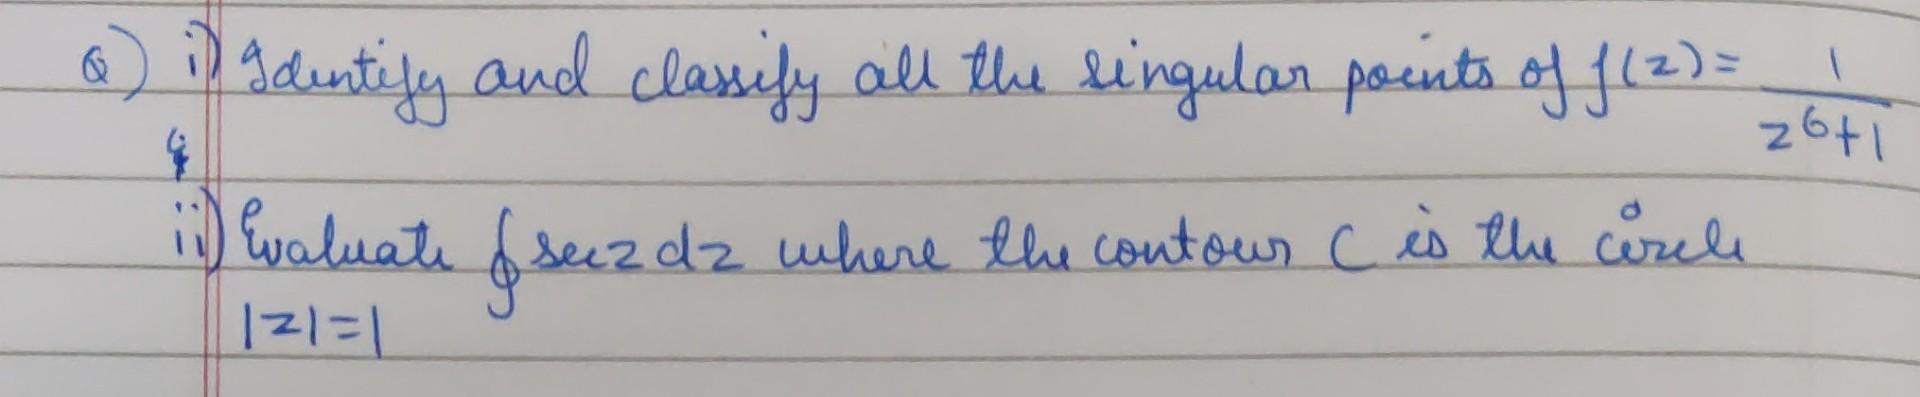 Q) i) Identify and classify all the singular points of f(z) = 1/(z^6+1)
ii) Evaluate ∮ sec z dz where the contour C is the circle
|z|=1